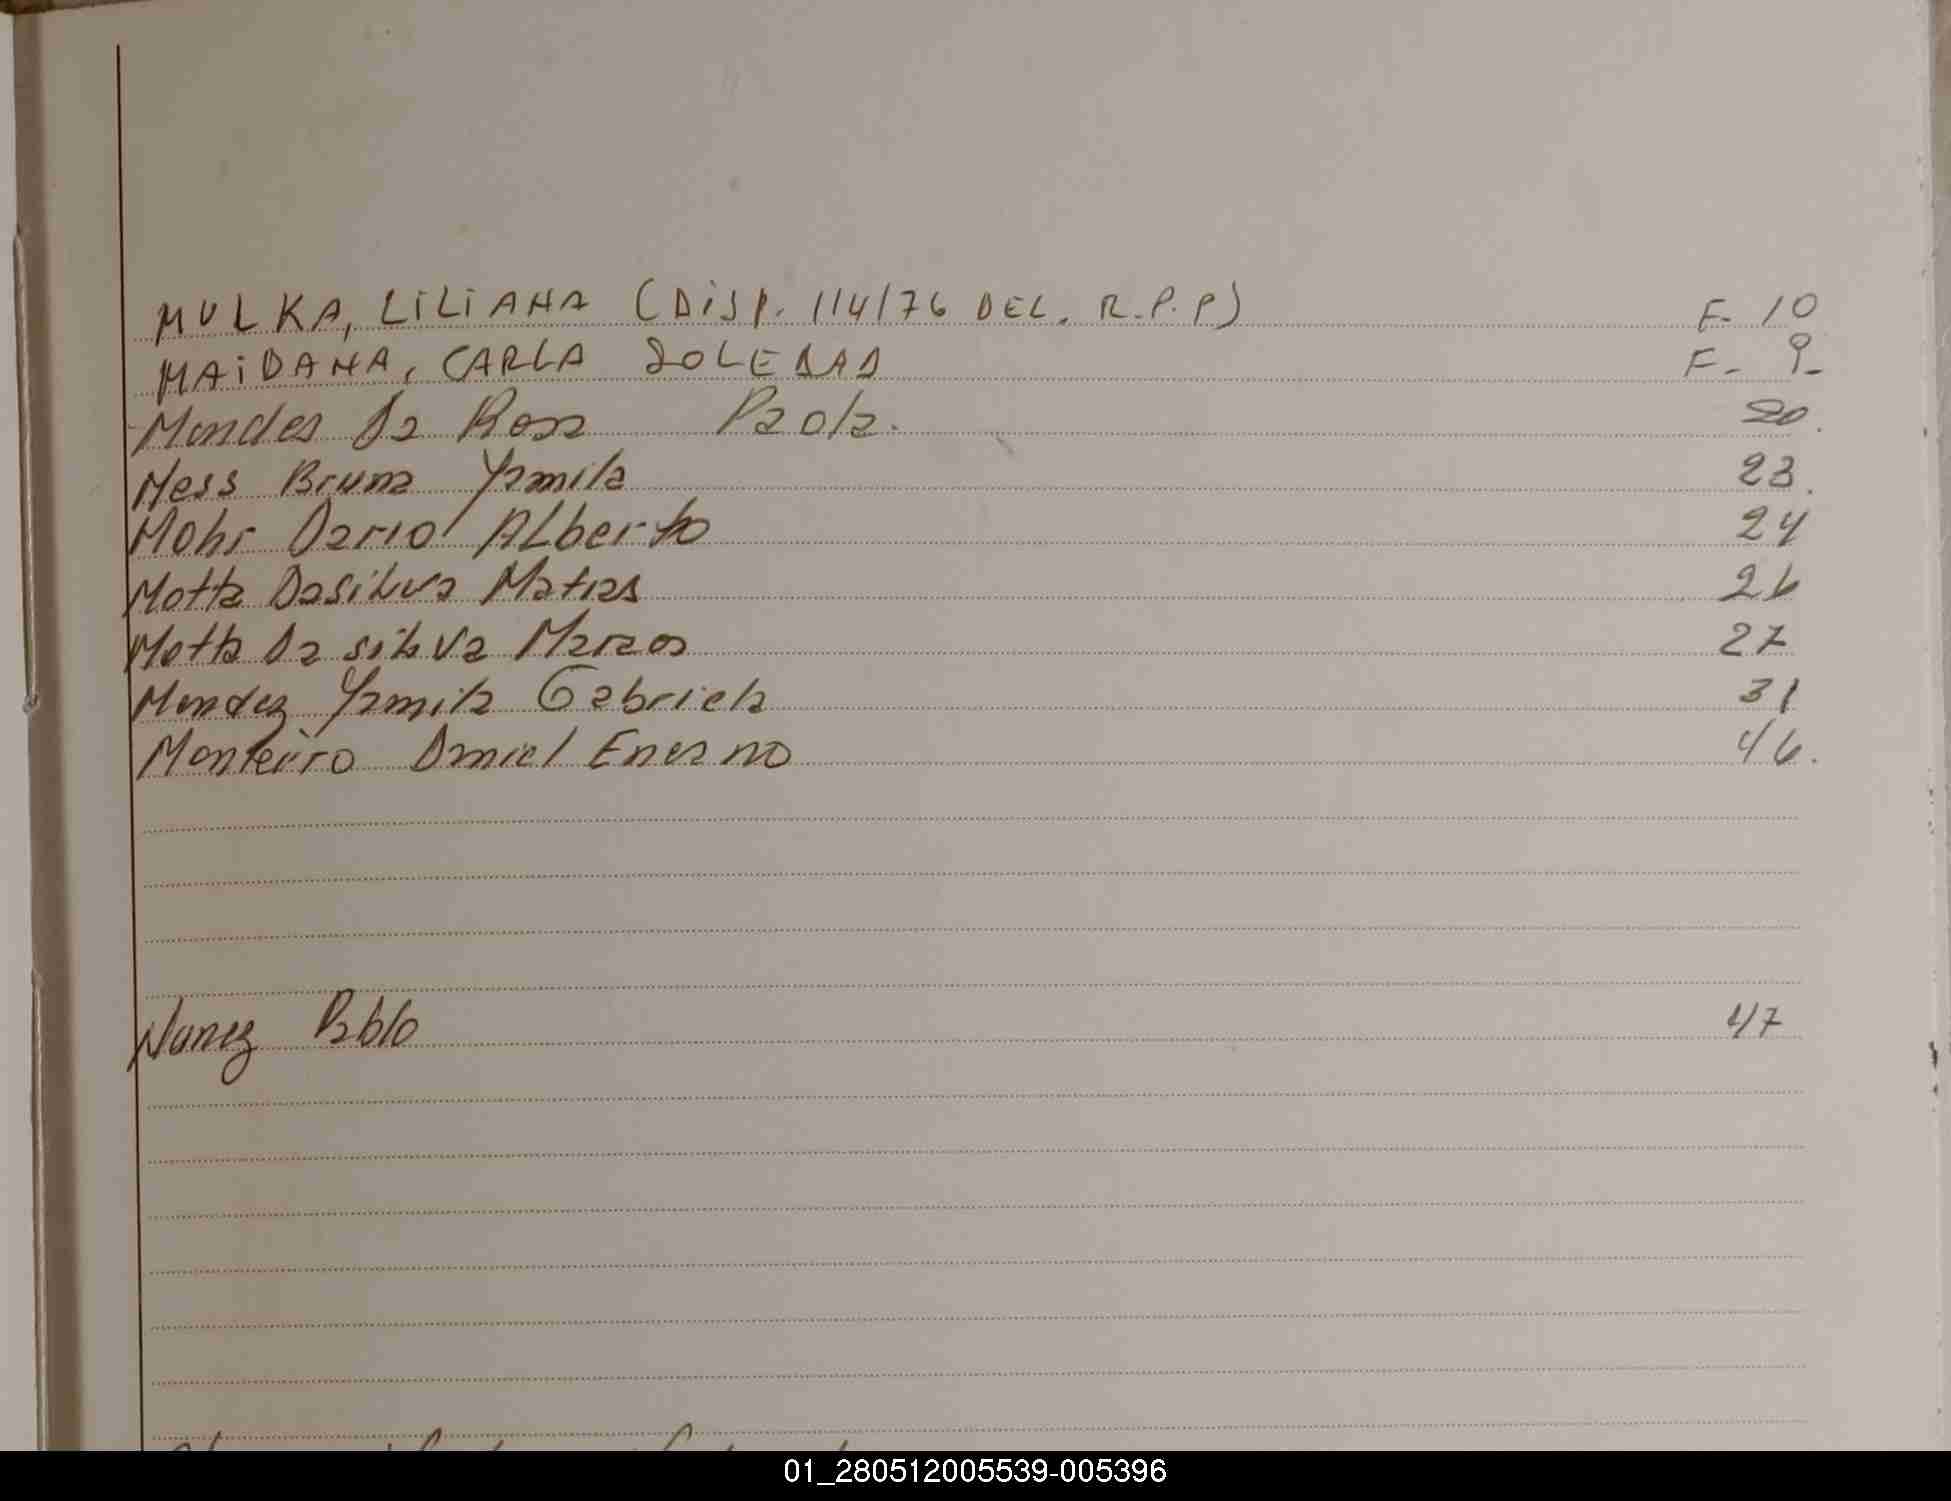 MULKA, LILIANA (DISP. 114/76 DEL. R.P.P) F. 10
MAIDANA, CARLA SOLEDAD F- 9-
Mendes Da Rosa Paola. 20.
Mess Bruna Yamila 23.
Mohr Dario Alberto 24
Motta Dasilva Matias 26
Motta Da silva Marcos 27
Mendez Yamila Gabriela 31
Monteiro Daniel 46.
Nunez Pablo 47
01_280512005539-005396